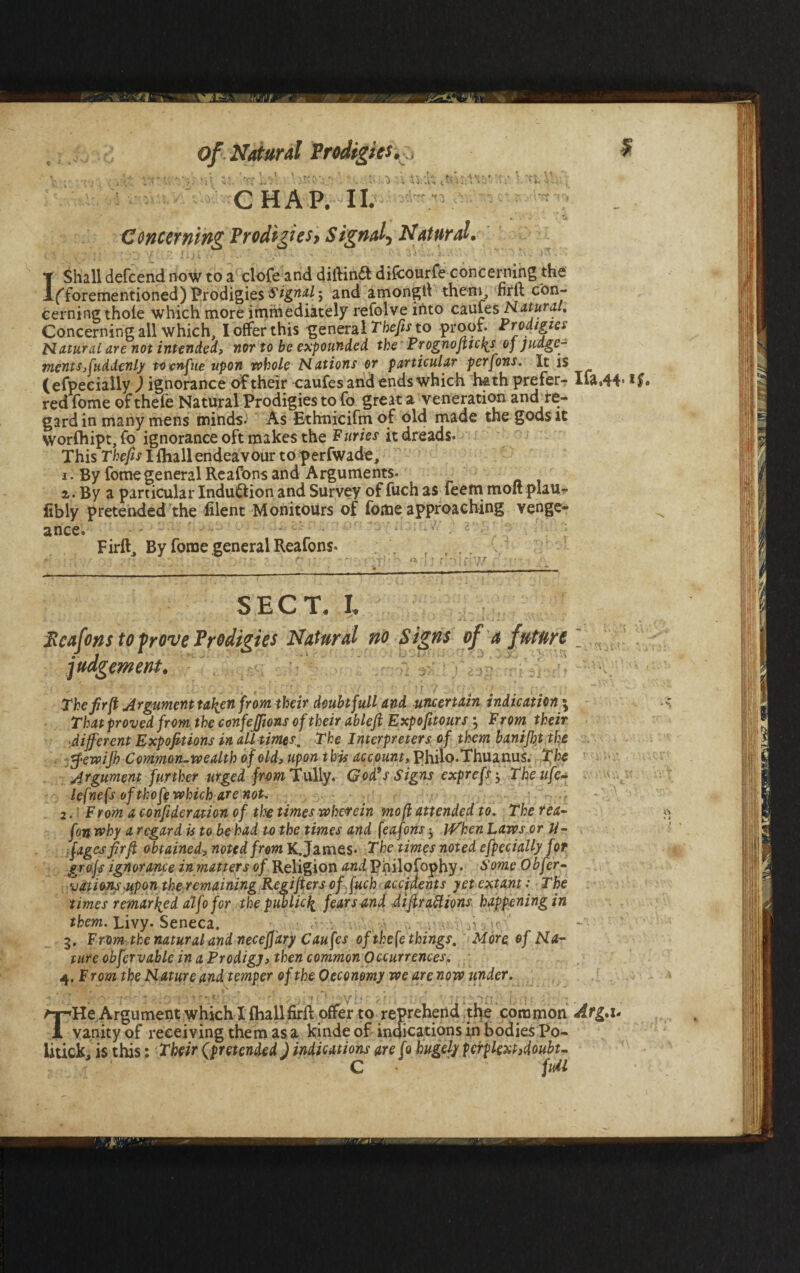 Of Natural Prodigies. 5
CHAP. II.
Concerning Prodigies, Signal, Natural.
I Shall deſcend now to a cloſe and diſtinct diſcourſe concerning the
(forementioned) Prodigies Signal; and amongſt them, firſt con-
cerning thoſe which more immediately reſolve into cauſes Natural.
Concerning all which, I offer this general Theſis to proof. Prodigies
Natural are not intended, nor to be expounded the Prognoſticks of judge-
ments, ſuddenly to enſue upon whole Nations or particular perſons. It is
(eſpecially) ignorance of their cauſes and ends which hath prefer- Iſa.44. 15.
red ſome of theſe Natural Prodigies to ſo great a veneration and re-
gard in many mens minds. As Ethniciſm of old made the gods it
worſhipt, ſo ignorance oft makes the Furies it dreads.
This Theſis I ſhall endeavour to perſwade,
1. By ſome general Reaſons and Arguments.
2. By a particular Induction and Survey of ſuch as ſeem moſt plau-
ſibly pretended the ſilent Monitours of ſome approaching venge-
ance.
Firſt, By ſome general Reaſons.
SECT. I.
Reaſons to prove Prodigies Natural no Signs of a future
judgement.
The firſt Argument taken from their doubtfull and uncertain indication;
That proved from the confeſſions of their ableſt Expoſitours; From their
different Expoſitions in all times. The Interpreters of them baniſht the
Jewiſh Common-wealth of old, upon this account, Philo. Thuanus. The
Argument further urged from Tully. God's Signs expreſs; The uſe-
leſneſs of thoſe which are not.
2. From a conſideration of the times wherein moſt attended to. The rea-
ſon why a regard is to be had to the times and ſeaſons; When Laws or U-
ſages firſt obtained, noted from K. James. The times noted eſpecially for
groſs ignorance in matters of Religion and Philoſophy. Some Obſer-
vations upon the remaining Regiſters of ſuch accidents yet extant: The
times remarked alſo for the publick fears and diſtractions happening in
them. Livy. Seneca.
3. From the natural and neceſſary Cauſes of theſe things. More of Na-
ture obſervable in a Prodigy, then common Occurrences.
4. From the Nature and temper of the Oeconomy we are now under.
THe Argument which I ſhall firſt offer to reprehend the common Arg.1.
vanity of receiving them as a kinde of indications in bodies Po-
litick, is this: Their (pretended) indications are ſo hugely perplext, doubt-
C full